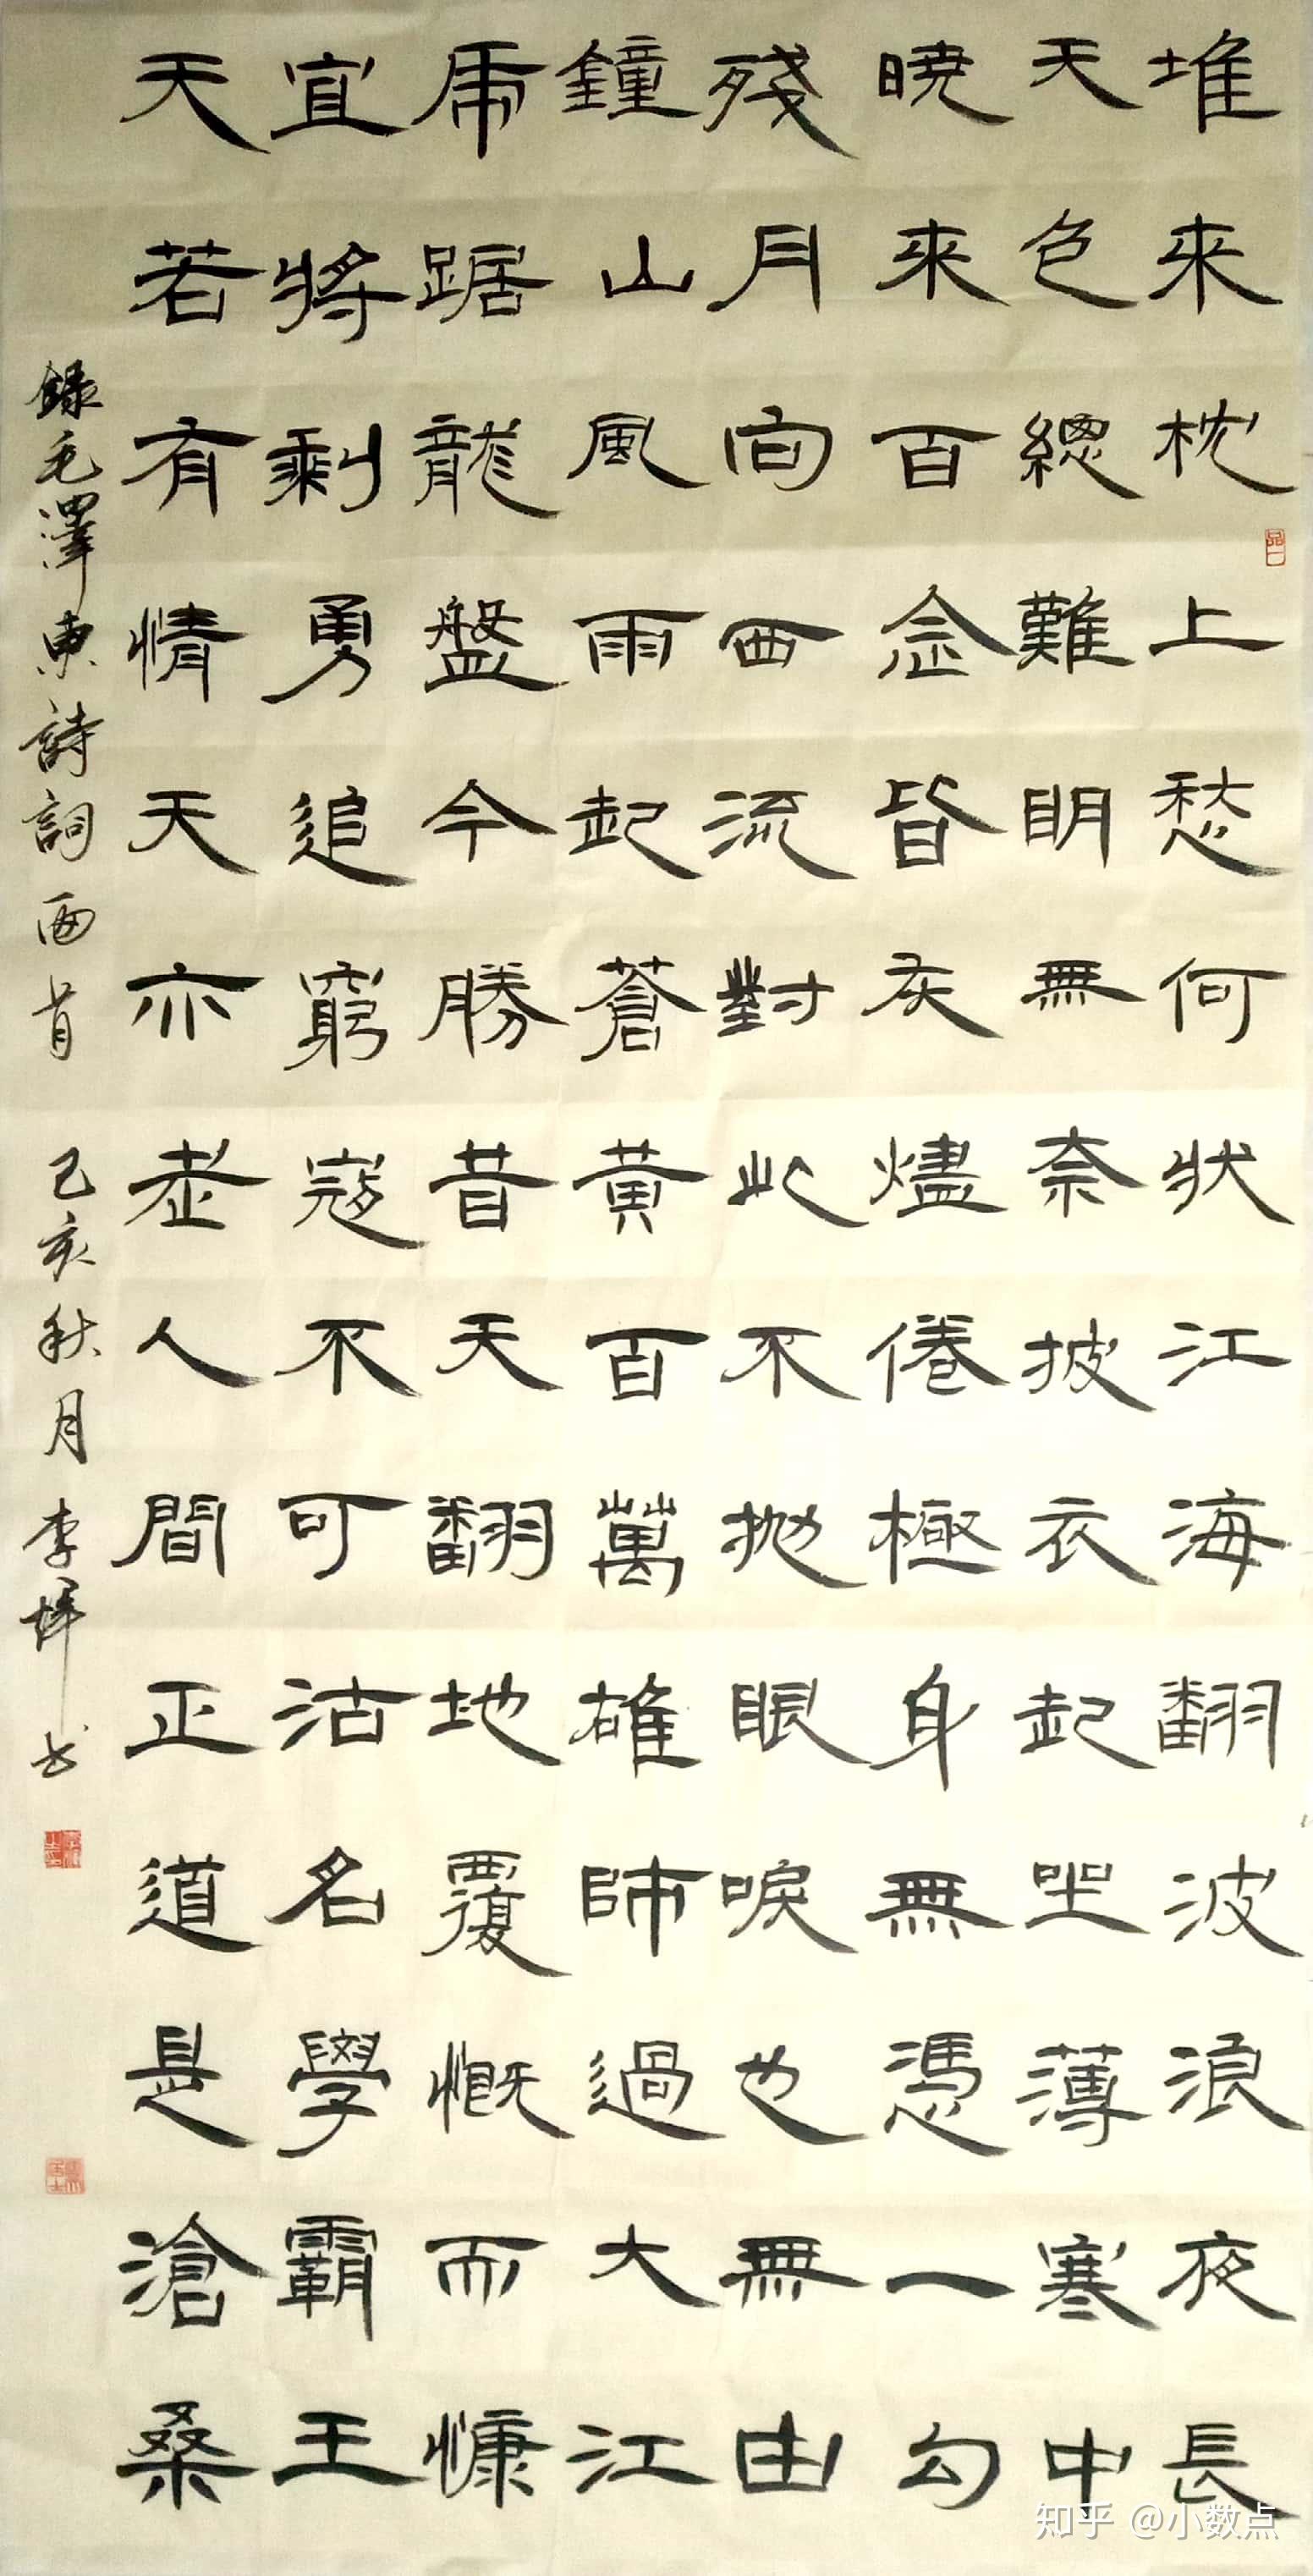 堆來枕上愁何狀江海翻波浪夜長
天色總難明無奈披衣起坐薄寒中
曉來百念皆灰燼倦極身無憑一勾
殘月向西流對此不抛眼唳也無由
鐘山風雨起蒼黃百萬雄師過大江
虎踞龍盤今勝昔天翻地覆慨而慷
宜將剩勇追窮寇不可沽名學霸王
天若有情天亦老人間正道是滄桑
錄毛澤東詩詞兩首 己亥秋月李坪书
知乎 @小数点